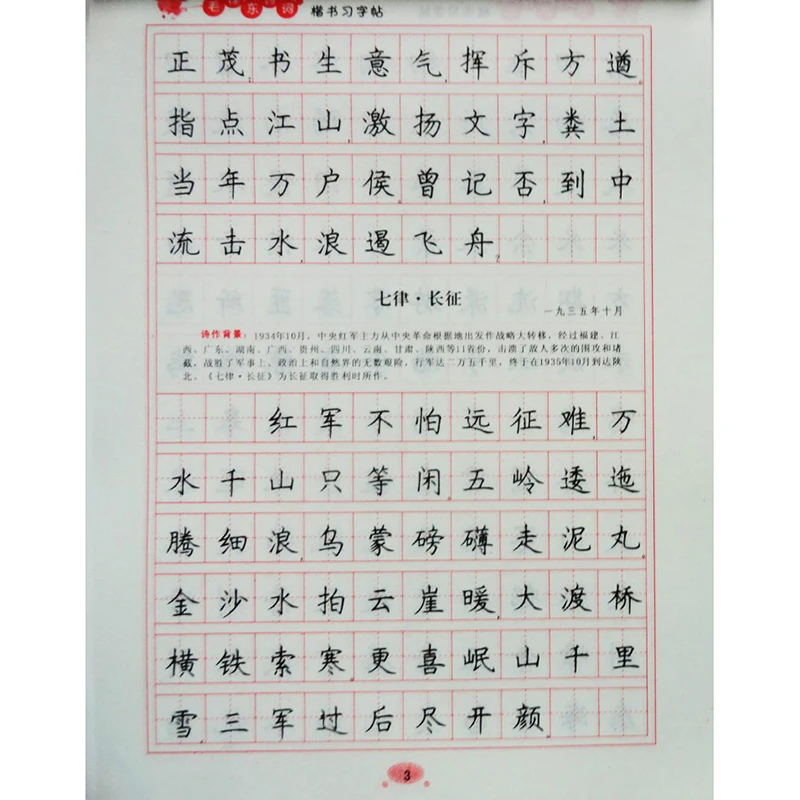 毛泽东诗词 楷书习字帖
正茂，书生意气，挥斥方遒。
指点江山，激扬文字，粪土
当年万户侯。曾记否，到中
流击水，浪遏飞舟？
七律·长征
一九三五年十月
诗作背景：1934年10月，中央红军主力从中央革命根据地出发作战略大转移，经过福建、江
西、广东、湖南、广西、贵州、四川、云南、甘肃、陕西等11省份，击溃了敌人多次的围攻和堵
截，战胜了军事上、政治上和自然界的无数艰险，行军达二万五千里，终于在1935年10月到达陕
北。《七律·长征》为长征取得胜利时所作。
红军不怕远征难，万
水千山只等闲。五岭逶迤
腾细浪，乌蒙磅礴走泥丸。
金沙水拍云崖暖，大渡桥
横铁索寒。更喜岷山千里
雪，三军过后尽开颜。
3